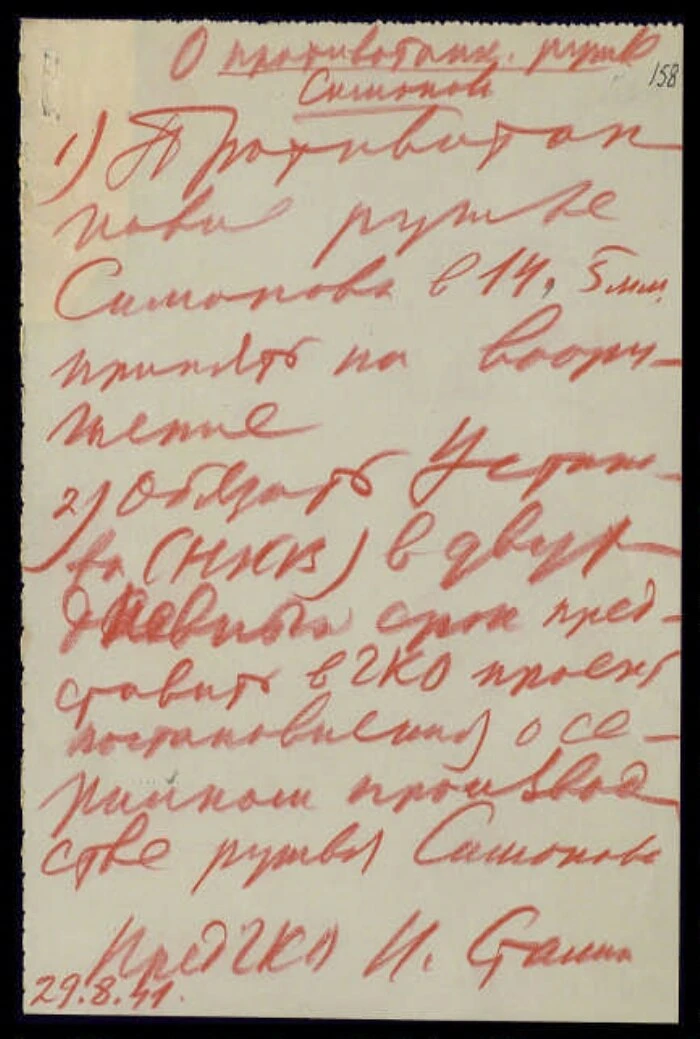 О противотанк. ружье
Симонова
158
1) Противотан
ковое ружье
Симонова в 14,5 мм.
принять на воору-
жение
2) Обязать Устино-
ва (НКВ) в двух-
дневный срок пред-
ставить в ГКО проект
постановления о се-
рийном производ
стве ружья Симонова
Пред ГКО И. Сталин
29.8.41.